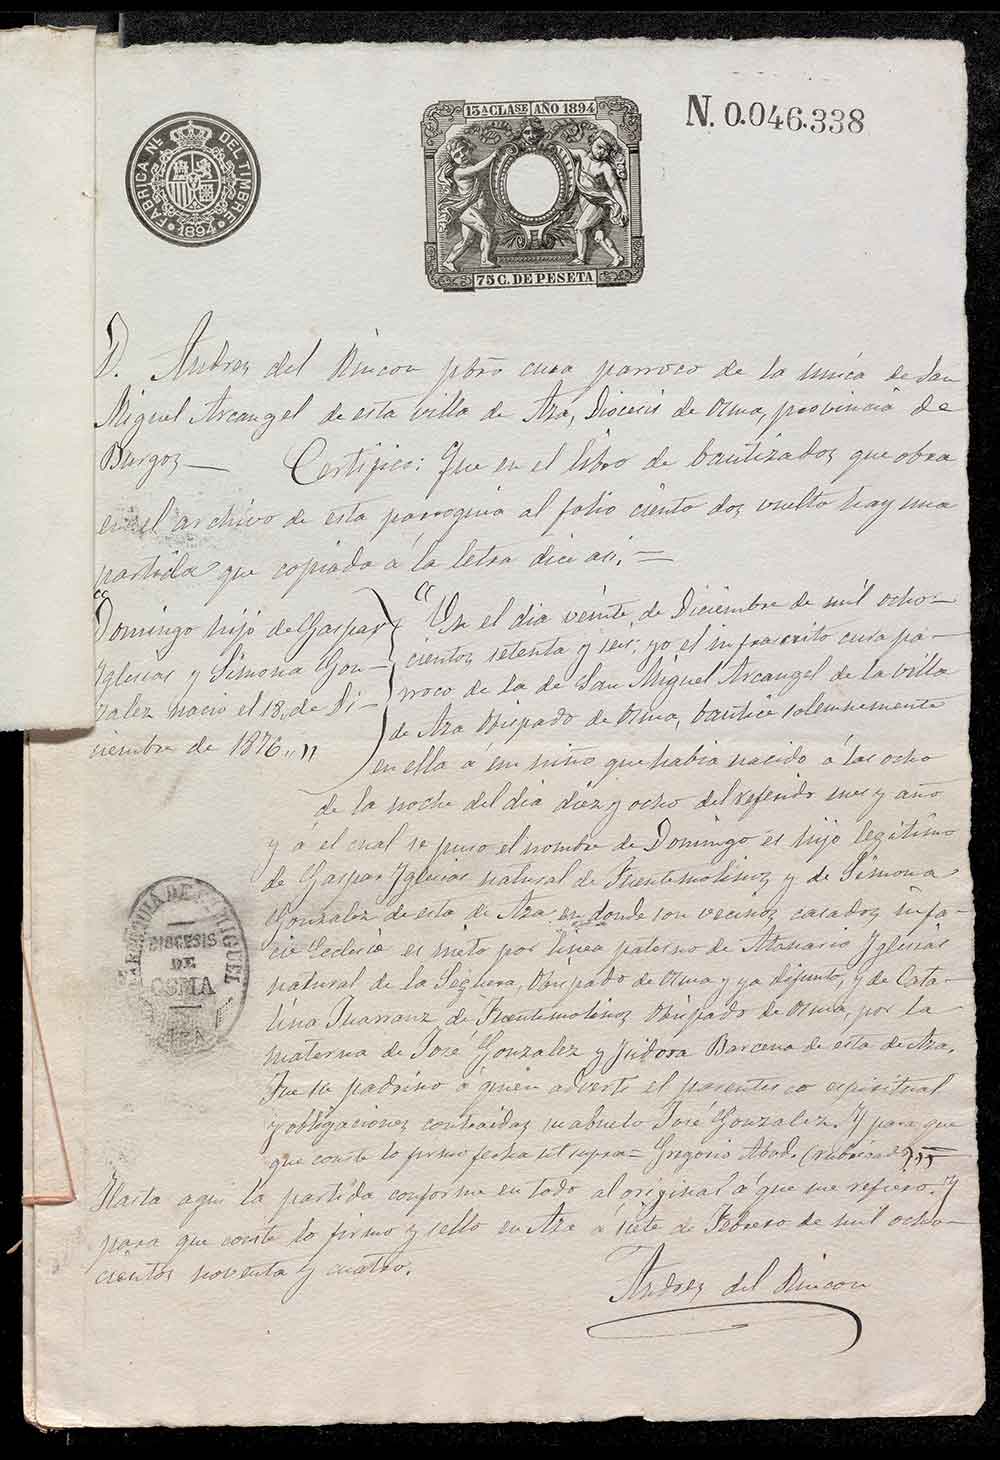 FABRICA NL. DEL TIMBRE
1894
13ª CLASE AÑO 1894
75 C. DE PESETA
N. 0.046.338
D. Andres del Rincon pbro cura parroco de la unica de San
Miguel Arcangel de esta villa de Aza, Diocesis de Osma, provincia de
Burgos — Certifico: Que en el libro de bautizados que obra
en el archivo de esta parroquia al folio ciento dos vuelto hay una
partida que copiada a la letra dice asi. =
"Domingo hijo de Gaspar
Yglesias y Simona Gon-
zalez nacio el 18, de Di-
ciembre de 1876.,"
"En el dia veinte, de Diciembre de mil ocho-
cientos setenta y seis; yo el infrascrito cura pa-
rroco de la de San Miguel Arcangel de la villa
de Aza Obispado de Osma, bautice solemnemente
en ella á un niño que habia nacido á las ocho
de la noche del dia diez y ocho del referido mes y año
y á el cual se puso el nombre de Domingo es hijo legitimo
de Gaspar Yglesias natural de Fuentemolinos y de Simona
Gonzalez de esta de Aza en donde son vecinos casados in fa-
cie Eclesie es nieto por linea paterno de Atanasio Yglesias
natural de la Seguera, Obispado de Osma y ya difunto, y de Cata-
lina Juarranz de Fuentemolinos Obispado de Osma, por la
materna de José Gonzalez y Ysidora Barcena de esta de Aza.
Fue su padrino á quien adverti el parentesco espiritual
y obligaciones contraidas su abuelo José Gonzalez. Y para que
que conste lo firmo fecha ut supra = Gregorio Abad. (rubricado)" =
Hasta aqui la partida conforme en todo al original á que me refiero. Y
para que conste lo firmo y sello en Aza á siete de Febrero de mil ocho-
cientos noventa y cuatro.
Andres del Rincon
PARROQUIA DE S. MIGUEL
DIOCESIS
DE
OSMA
AZA